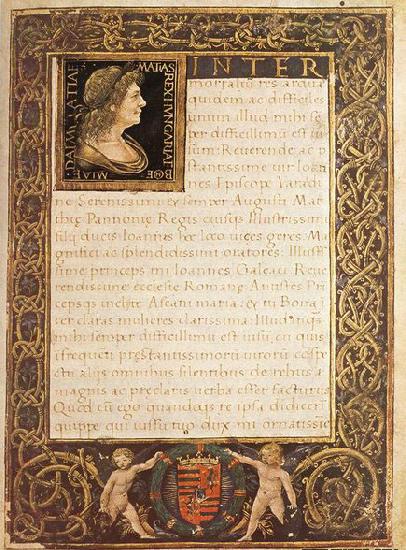 MATIAS REX HVNGARIAE BOE
MIAE DALMATIAE
INTER
mortalis res ardua
quidem ac difficiles
unum illud mihi se
per difficillimū est
sum: Reverende ac p
stantissime vir Ioan
nes Episcope
ne Serenissimi & semper Augusti Mat
thię Pannonię Regis eiusq Illustrissimi
filii ducis Ioannis hoc loco vices geres: Ma
gnifici ac splendidissimi oratores: Illust
sime princeps mi Ioannes Galeaz Reve
rendissime ecclesię Romanę Antistes Pri
cepsq inclite Ascani maria: & tu Bona
ter claras mulieres clarissima: Illud inqua
mihi semper difficillimū est visū, cū quis
frequēti prestantissimorū virorū cospe
ctu aliis omnibus silentibus de rebus
magnis ac preclaris verba esset facturus
Quod cū ego quandoq re ipsa didici
quippe qui iussu tuo dux mi ornatissime